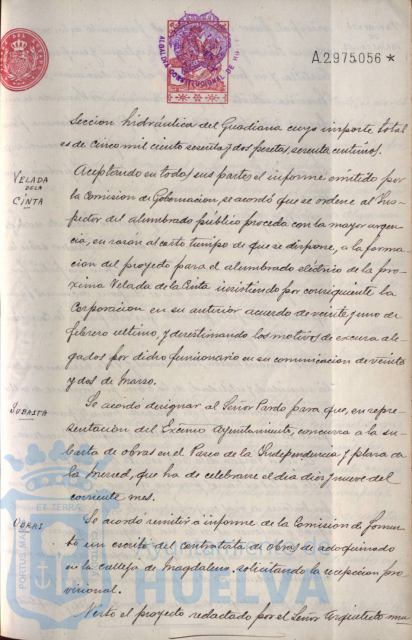 A.2975056 *
ALCALDIA CONSTITUCIONAL DE
Seccion hidráulica del Guadiana cuyo importe total
es de cinco mil ciento sesenta y dos pesetas, sesenta centimos.
VELADA
DE LA
CINTA
Aceptando en todas sus partes el informe emitido por
la Comision de Gobernacion, se acordó que se ordene al Ins-
pector del alumbrado público proceda con la mayor urgen-
cia, en razón al corto tiempo de que se dispone, a la forma-
cion del proyecto para el alumbrado eléctrico de la pro-
xima Velada de la Cinta insistiendo por consiguiente la
Corporacion en su anterior acuerdo de veinte y uno de
febrero ultimo, y desestimando los motivos de excusa ale-
gados por dicho funcionario en su comunicacion de veinte
y dos de Marzo.
SUBASTA
Se acordó designar al Señor Pardo para que, en repre-
sentación del Excmo Ayuntamiento, concurra a la su-
basta de obras en el Paseo de la Independencia y plaza de
la Merced, que ha de celebrarse el dia diez y nueve del
corriente mes.
OBRAS
Se acordó remitir a informe de la Comision de fomen-
to un escrito del contratista de obras de adoquinado
en la calleja de Magdalena, solicitando la recepcion pro-
visional.
Visto el proyecto redactado por el Señor Arquitecto mu-
ET TERRA
PORTUS MARIS
Ayuntamiento de
HUELVA